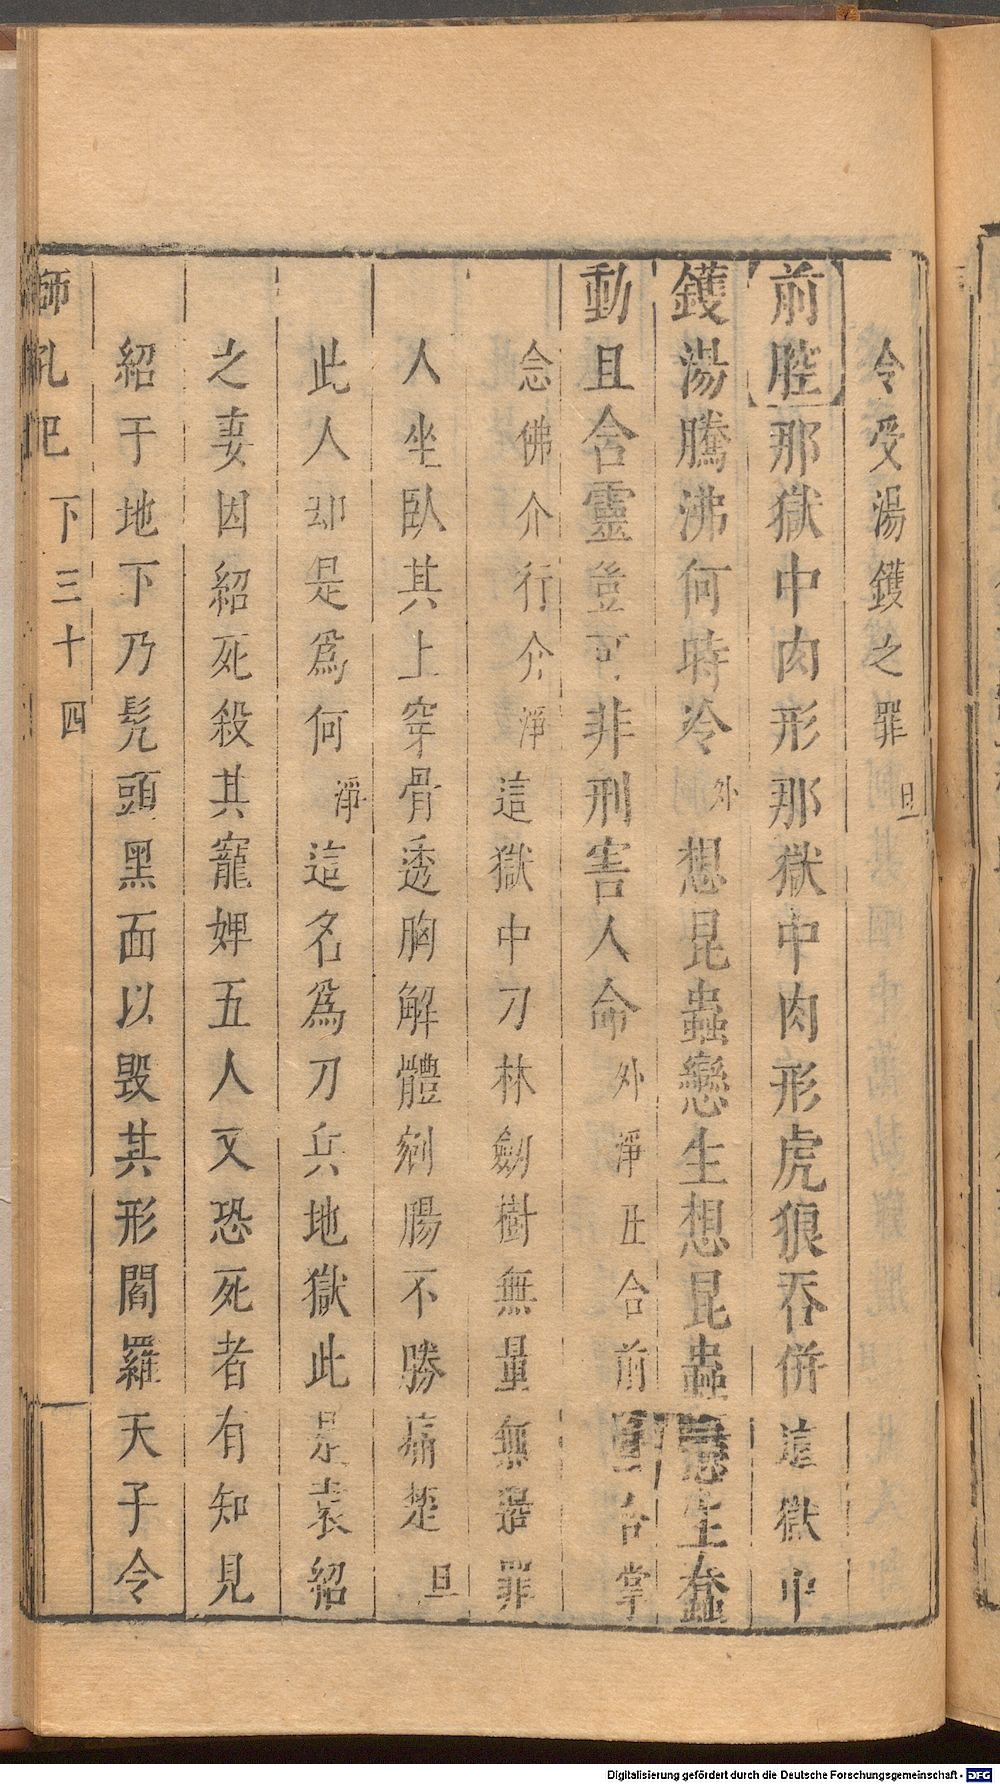 令受湯鑊之罪旦
前腔那獄中肉形那獄中肉形虎狼吞併這獄中
鑊湯騰沸何時冷外想昆蟲戀生想昆蟲戀生蠢
動且含靈豈可非刑害人命外淨丑合前旦合掌
念佛介介行介淨這獄中刀林劍樹無量無邊罪
人坐臥其上穿骨透胸解體剜腸不勝痛楚旦
此人却是爲何淨這名爲刀兵地獄此是袁紹
之妻因紹死殺其寵婢五人又恐死者有知見
紹于地下乃髡頭黑面以毀其形閻羅天子令
師孔巴
下三十四
Digitalisierung gefördert durch die Deutsche Forschungsgemeinschaft - DFG